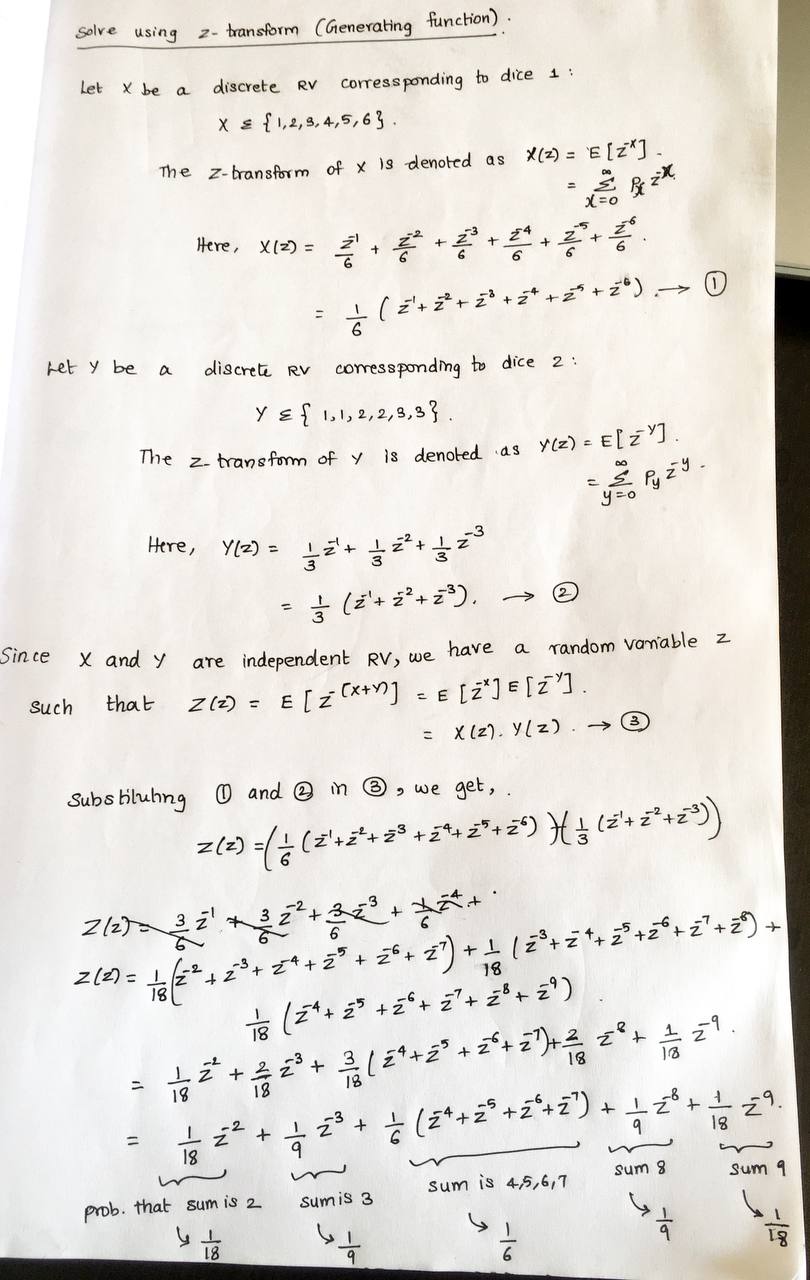 Solve using z-transform (Generating function).
Let X be a discrete RV corressponding to dice 1 :
X ε {1,2,3,4,5,6}.
The Z-transform of X is denoted as X(z) = E[z^-x].
= Σ_{x=0}^{∞} P_x z^-x.
Here, X(z) = z^-1/6 + z^-2/6 + z^-3/6 + z^-4/6 + z^-5/6 + z^-6/6.
= 1/6 (z^-1 + z^-2 + z^-3 + z^-4 + z^-5 + z^-6). → ①
Let Y be a discrete RV corressponding to dice 2 :
Y ε { 1,1,2,2,3,3}.
The z-transform of Y is denoted as Y(z) = E[z^-Y].
= Σ_{y=0}^{∞} P_y z^-y.
Here, Y(z) = 1/3 z^-1 + 1/3 z^-2 + 1/3 z^-3
= 1/3 (z^-1 + z^-2 + z^-3). → ②
Since X and Y are independent RV, we have a random variable Z
such that Z(z) = E[z^-(X+Y)] = E[z^-x] E[z^-Y].
= X(z). Y(z). → ③
Substituting ① and ② in ③, we get,.
Z(z) = (1/6 (z^-1 + z^-2 + z^-3 + z^-4 + z^-5 + z^-6)) (1/3 (z^-1 + z^-2 + z^-3))
Z(z) = 3/6 z^-1 + 3/6 z^-2 + 3/6 z^-3 + 1/6 z^-4 +
Z(z) = 1/18 (z^-2 + z^-3 + z^-4 + z^-5 + z^-6 + z^-7) + 1/18 (z^-3 + z^-4 + z^-5 + z^-6 + z^-7 + z^-8) +
1/18 (z^-4 + z^-5 + z^-6 + z^-7 + z^-8 + z^-9).
= 1/18 z^-2 + 2/18 z^-3 + 3/18 (z^-4 + z^-5 + z^-6 + z^-7) + 2/18 z^-8 + 1/18 z^-9.
= 1/18 z^-2 + 1/9 z^-3 + 1/6 (z^-4 + z^-5 + z^-6 + z^-7) + 1/9 z^-8 + 1/18 z^-9.
prob. that sum is 2 sum is 3 sum is 4,5,6,7 sum 8 sum 9
↳ 1/18 ↳ 1/9 ↳ 1/6 ↳ 1/9 ↳ 1/18